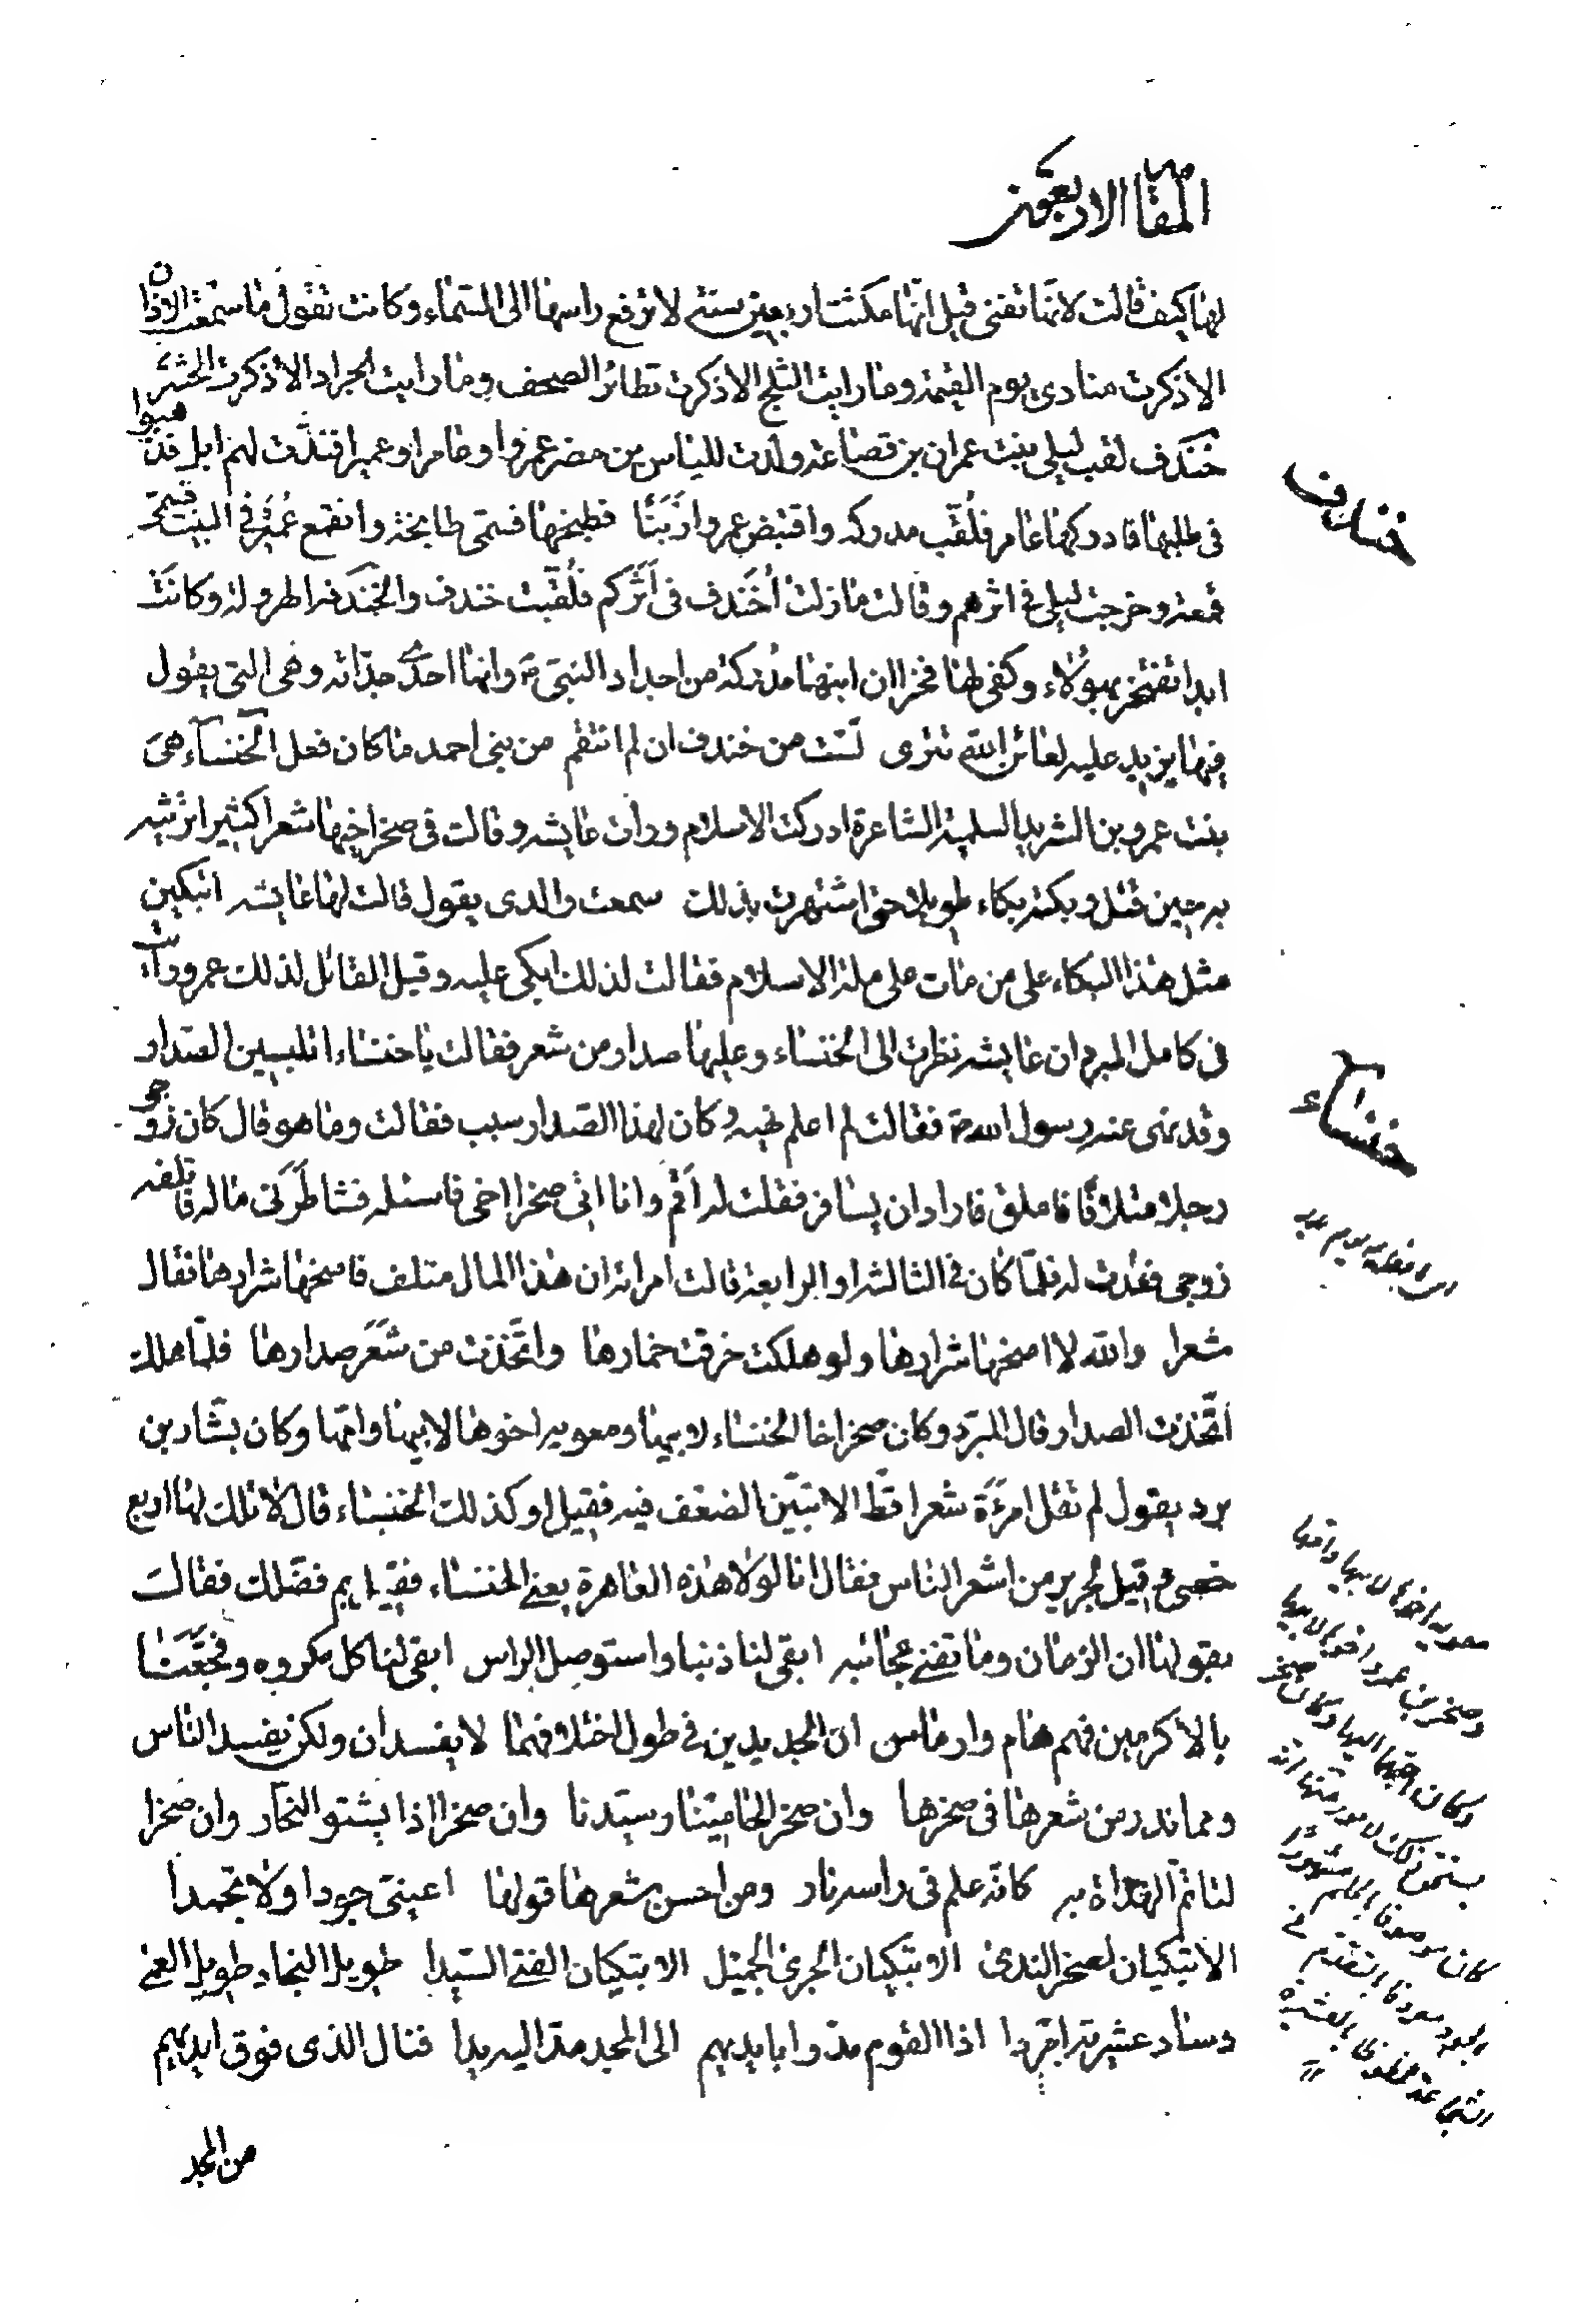 المقامة الاربعون
لها كيف قالت لانها تفنى قيل انها مكثت اربعين سنة لا ترفع راسها الى السماء وكانت تقول ما سمعت الاذان
الا ذكرت منادى يوم القيمة وما رايت الثلج الا ذكرت تطائر الصحف وما رايت الجراد الا ذكرت الحشر
خندف لقب ليلى بنت عمران بن قضاعة ولدت للياس بن مضر عمروا وعامرا وعميرا فندّت لهم ابل فذهبوا
فى طلبها فادركها عامر فلُقّب مدركه واقتبض عمروا ارنبًا فطبخها فسمى طابخة وانقمع عُمَير فى البيت فسمّى
قمعة وخرجت ليلى فى اثرهم وقالت ما زلت اُخَندف فى اَثَركم فلُقّبت خندف والخَندفه الهرولة وكانَتْ
ابدا تفتخر بهؤلاء وكفى لها فخرا ان ابنها مدركة من اجداد النبىّ ص وانها احدى جدّاته وهى التى يقول
فيها يزيد عليه لعائن الله تترى لَسْت من خندف ان لم انتقم من بنى احمد ما كان فعل الخنسآء هىَ
بنت عمرو بن الشريد السلمية الشاعرة ادركت الاسلام ورات عايشه وقالت فى صخر اخيها شعرا كثيرا ترثيه
به حين قتل وبكته بكاء طويلا حتى اشتهرت بذلك سمعت والدى يقول قالت لها عايشه اتبكين
مثل هذا البكاء على من مات على ملة الاسلام فقالت لذلك ابكى عليه وقيل القائل لذلك عمر ورايت
فى كامل المبرد ان عايشه نظرت الى الخنساء وعليها صدار من شعر فقالت يا خنساء اتلبسين الصدار
وقد نهى عنه رسول الله ص فقالت لم اعلم نهيه وكان لهذا الصدار سبب فقالت وما هو قال كان زوجى
رجلا متلافًا فاملق فاراد ان يسافر فقلت له اَقم وانا اتى صخرا اخى فاسئله فشاطَرَنى ماله فاتلفه
زوجى فعُدت له فلمّا كان فى الثالثه او الرابعة قالت امراته ان هذا المال متلف فامنحها شرارها فقال
شعرا والله لا امنحها شرارها ولو هلكت خرقت خمارها واتّخذت من شَعَر صدارها فلمّا هلك
اتّخذت الصدار قال المبرّد وكان صخر اخا الخنساء لابيها ومعويه اخوها لابيها وامّها وكان بشّار بن
برد يقول لم تقل امرءَة شعرا قطّ الا تبيّن الضعف فيه فقيل او كذلك الخنساء قال لا تلك لها اربع
خصى ق قيل لجرير من اشعر الناس فقال انا لولا هذه العاهرة يعنى الخنساء فقيل بم فضّلتك فقالت
بقولها ان الزمان وما تفنى عجائبه ابقى لنا ذنبا واستوصل الراس ابقى لنا كل مكروه وفجّعَنا
بالاكرمين فهم هام وارماس ان الجديدين فى طول اختلافهما لا يفسدان ولكن يفسد الناس
ومما ندر من شعرها فى صخرها وان صخرا لحامينا وسيدنا وان صخرا اذا يشتو النحّار وان صخرا
لتاتمّ الهداة به كانّه علم فى راسه نار ومن احسن شعرها قولها اعينىّ جودا ولا تجمدا
الا تبكيان لصخر الندى الا تبكيان الجرى الجميل الا تبكيان الفتى السّيدا طويل النجاد طويل العى
وساد عشيرته امردا اذا القوم مدّوا بايديهم الى المجد مدّ اليه يدا فنال الذى فوق ايديهم
من المجد
خندف
خنساء
معويه اخوها لابيها وامها
وصخر بن عمرو اخوها لابيها
وكان احبّهما اليها وكان صخر
يستحق ذلك لامور منها انه
كان موصوفا بالحلم مشهورا
بالجود معروفا بالتقدم فى
الشجاعة محظوظا فى العشيرة